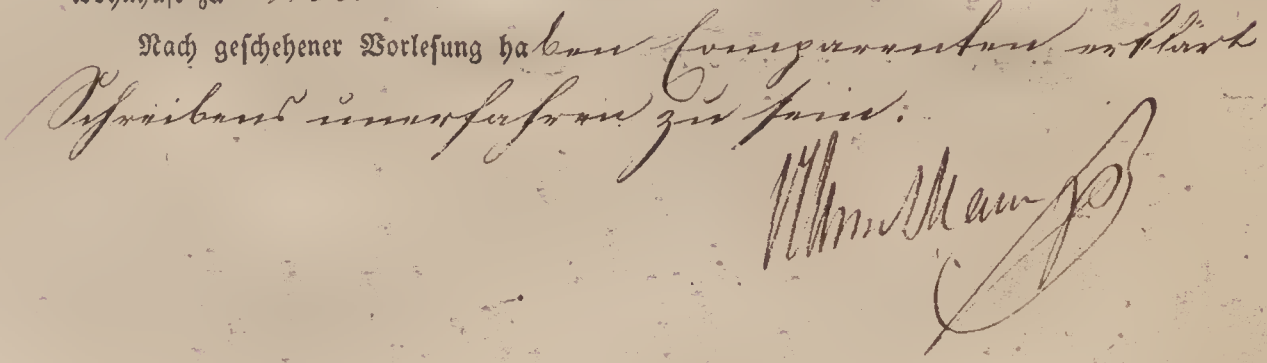 Nach geschehener Vorlesung haben Comparenten erklärt
Schreibens unerfahren zu sein: